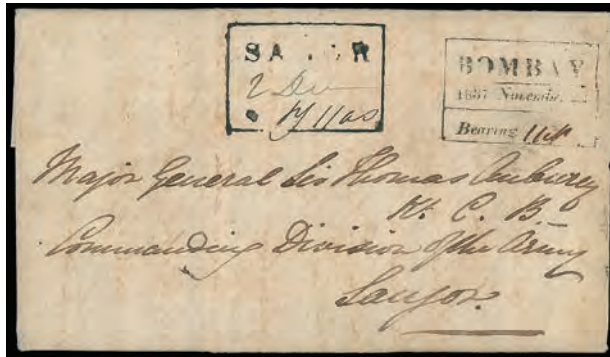 SA . . R
2 Dec
11 as
BOMBAY
1837 November
Bearing 11 as
Major General Sir Thomas Anburey
K. C. B.
Commanding Division of the Army
Saugor.